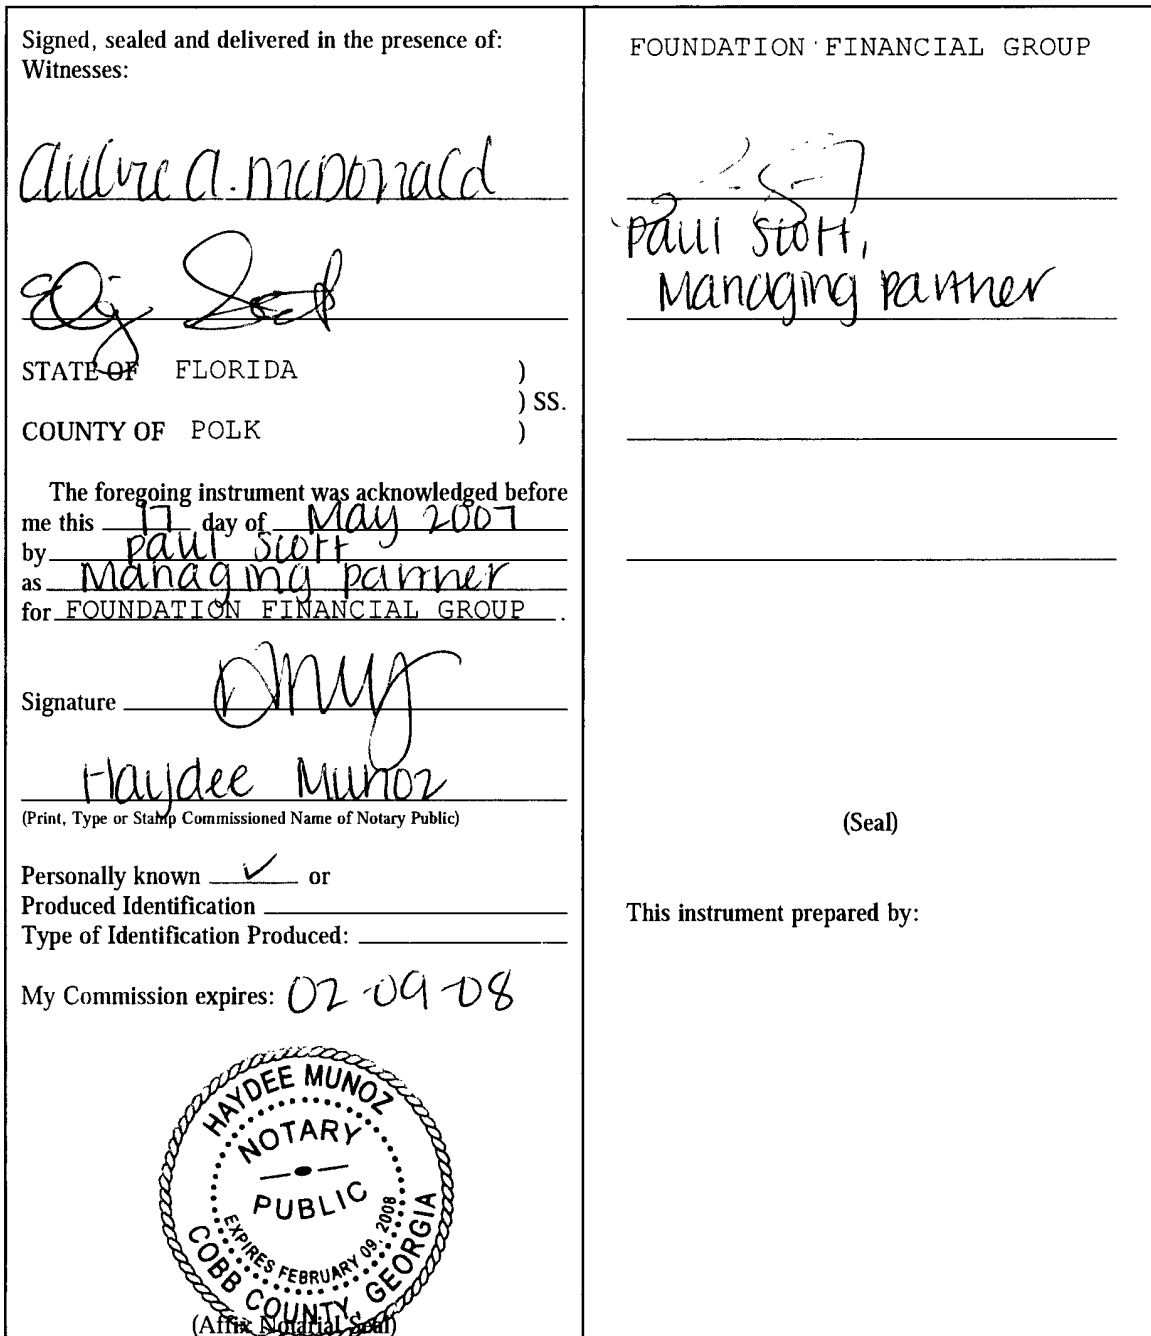 Signed, sealed and delivered in the presence of:
Witnesses:
a. mcDonald
STATE OF FLORIDA )
) SS.
COUNTY OF POLK )
The foregoing instrument was acknowledged before
me this 17 day of May 2007
by paul scott
as Managing partner
for FOUNDATION FINANCIAL GROUP .
Signature
Haydee Munoz
(Print, Type or Stamp Commissioned Name of Notary Public)
Personally known ✓ or
Produced Identification
Type of Identification Produced:
My Commission expires: 02-09-08
HAYDEE MUNOZ
NOTARY
PUBLIC
EXPIRES FEBRUARY 09, 2008
COBB COUNTY, GEORGIA
(Affix Notarial Seal)
FOUNDATION FINANCIAL GROUP
paul scott,
Managing partner
(Seal)
This instrument prepared by: